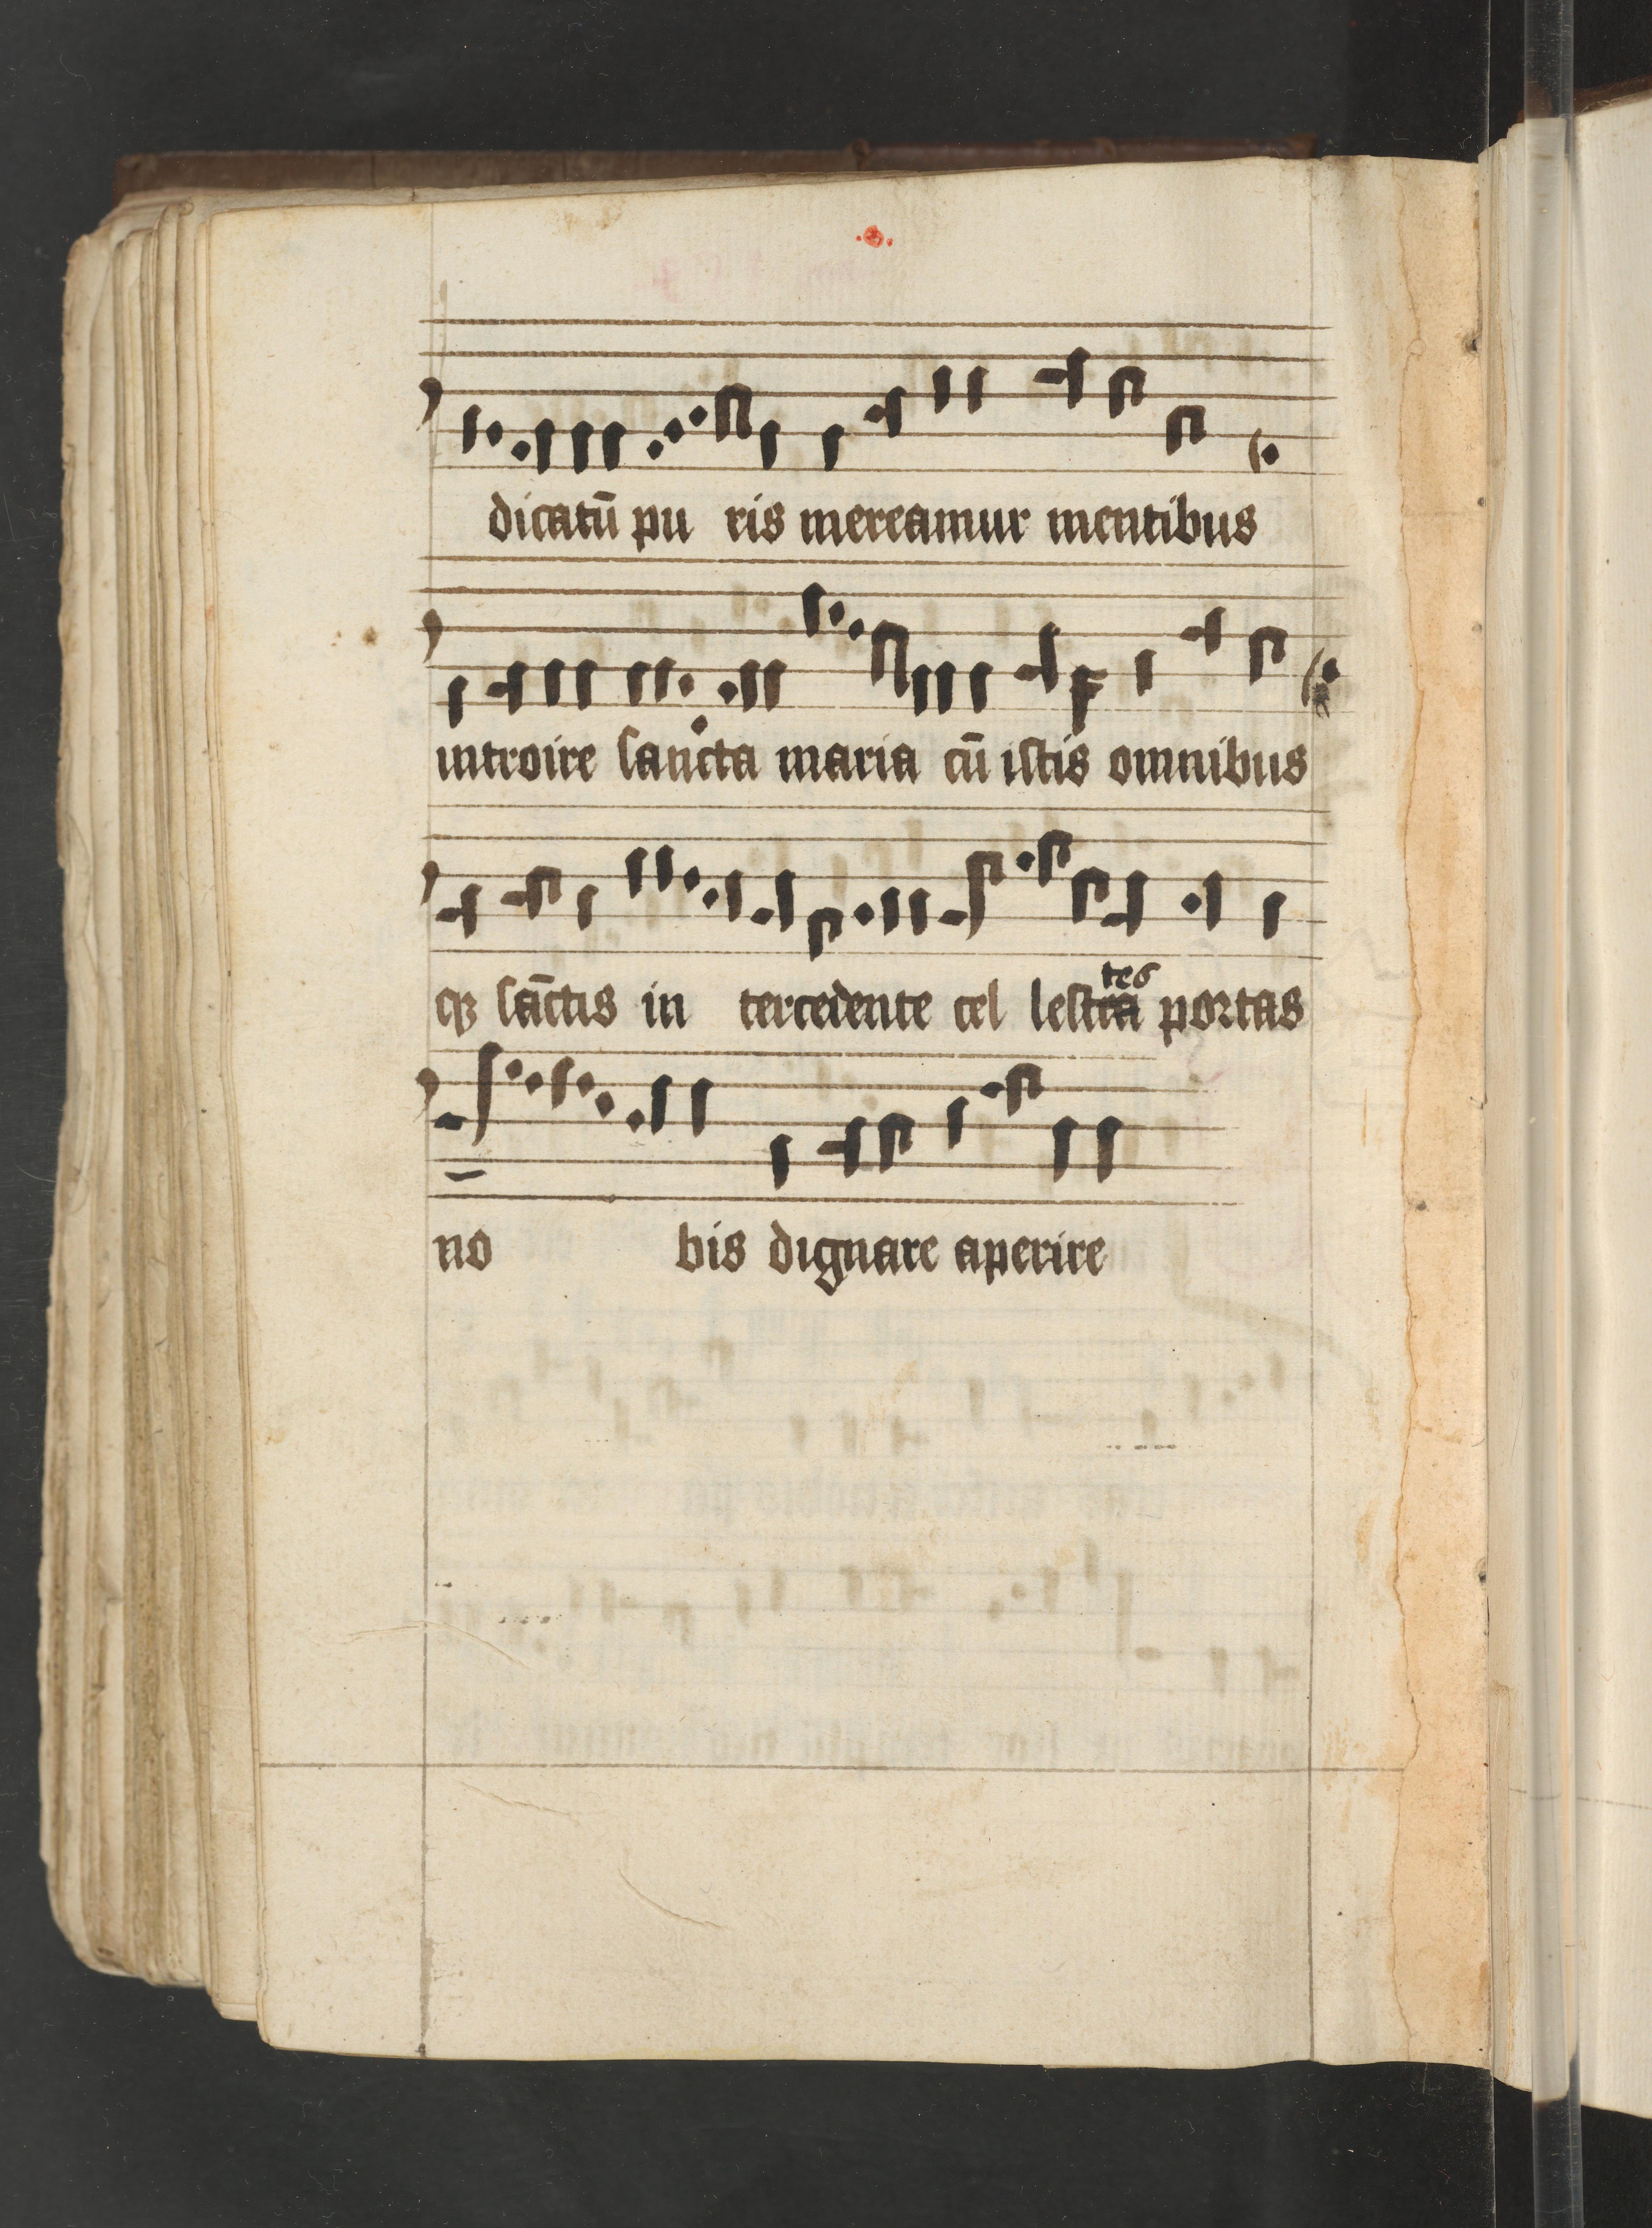 dicatū pu ris mereamur mentibus
introire sancta maria cū istis omnibus
tes
qꝫ sāctis in tercedente cel lestra portas
no bis dignare aperire